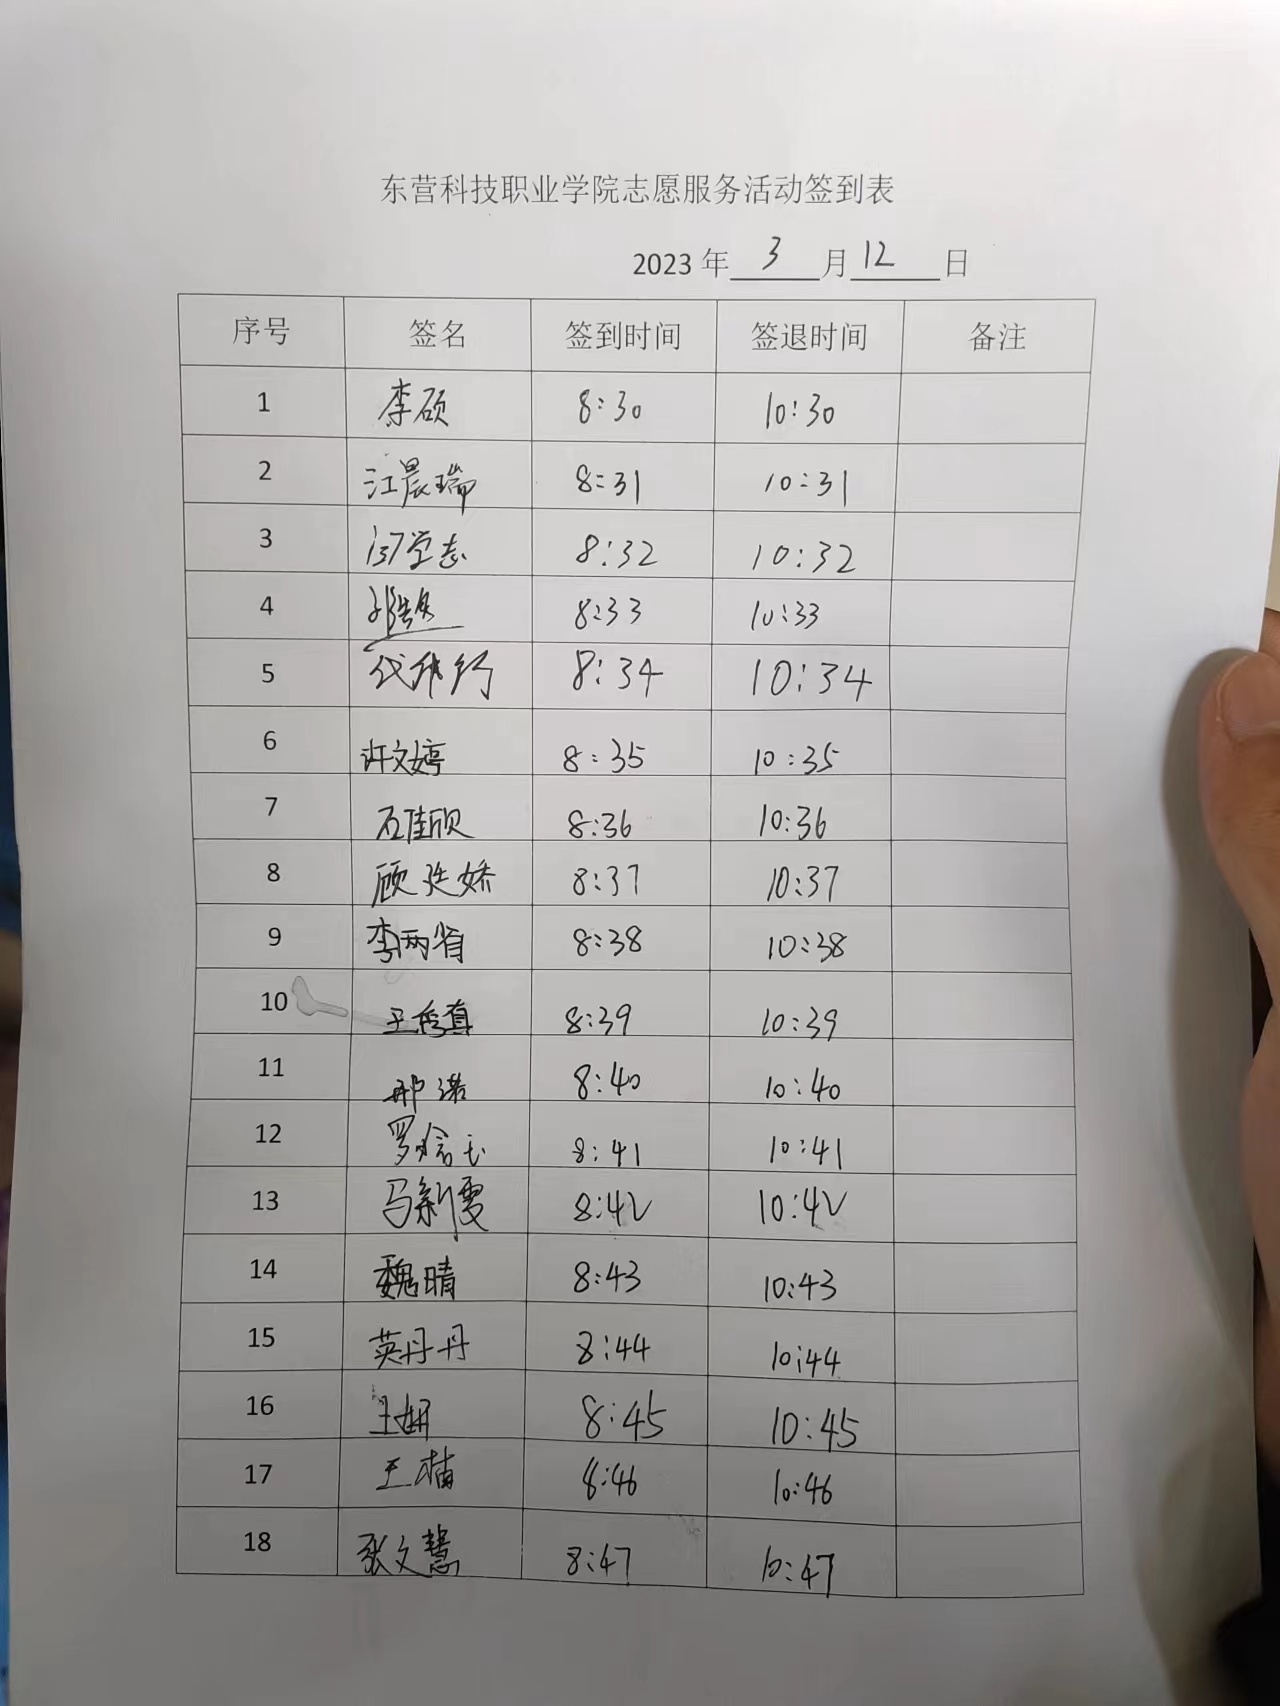 东营科技职业学院志愿服务活动签到表
2023 年 3 月 12 日
序号 签名 签到时间 签退时间 备注
1 李硕 8:30 10:30
2 江晨瑞 8:31 10:31
3 8:32 10:32
4 8:33 10:33
5 8:34 10:34
6 许文婷 8:35 10:35
7 石佳欣 8:36 10:36
8 8:37 10:37
9 李两省 8:38 10:38
10 8:39 10:39
11 邢诺 8:40 10:40
12 8:41 10:41
13 马新雯 8:42 10:42
14 魏晴 8:43 10:43
15 英丹丹 8:44 10:44
16 王妍 8:45 10:45
17 王楠 8:46 10:46
18 张文慧 8:47 10:47